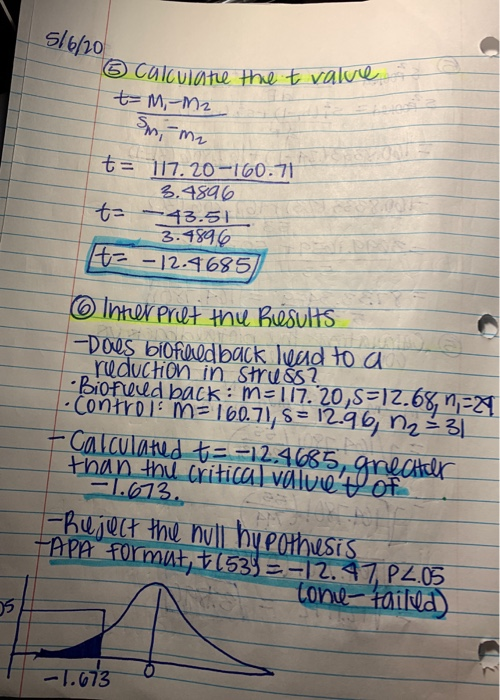 5/6/20
⑤ Calculate the t value
t= M₁-M₂
Sm₁-m₂
t= 117.20-160.71
3.4896
t= -43.51
3.4896
t= -12.4685
⑥ Interpret the Results
-Does biofeedback lead to a
reduction in stress?
•Biofeedback: M=117.20, S=12.68, n₁=24
•Control: M=160.71, S=12.96, n₂=31
-Calculated t=-12.4685, greater
than the critical value t of
-1.673.
-Reject the null hypothesis
-APA format, t(53)=-12.47, P<.05
(one-tailed)
05
-1.673 0